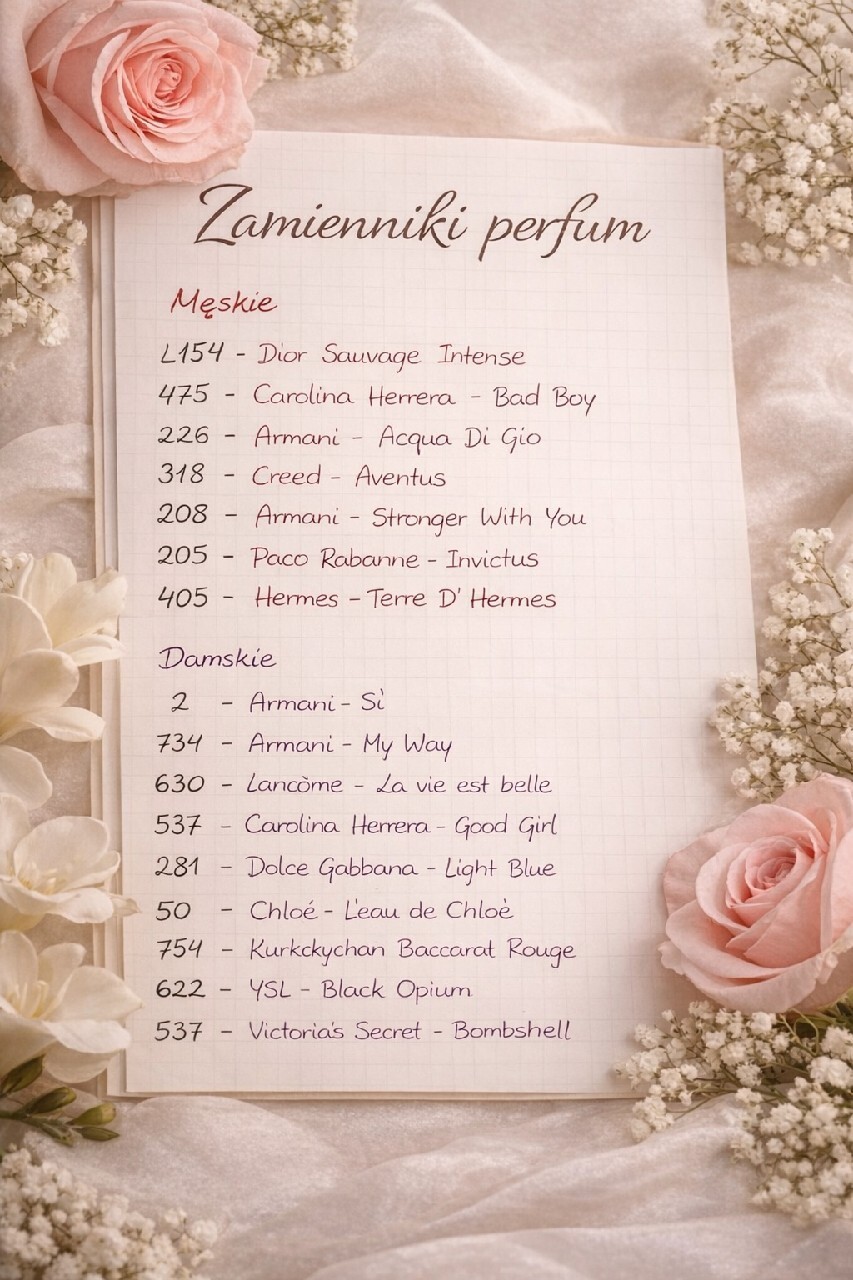 Zamienniki perfum
Męskie
L154 - Dior Sauvage Intense
475 - Carolina Herrera - Bad Boy
226 - Armani - Acqua Di Gio
318 - Creed - Aventus
208 - Armani - Stronger With You
205 - Paco Rabanne - Invictus
405 - Hermes - Terre D' Hermes
Damskie
2 - Armani - Sì
734 - Armani - My Way
630 - Lancòme - La vie est belle
537 - Carolina Herrera - Good Girl
281 - Dolce Gabbana - Light Blue
50 - Chloé - L'eau de Chloè
754 - Kurkckychan Baccarat Rouge
622 - YSL - Black Opium
537 - Victoria's Secret - Bombshell